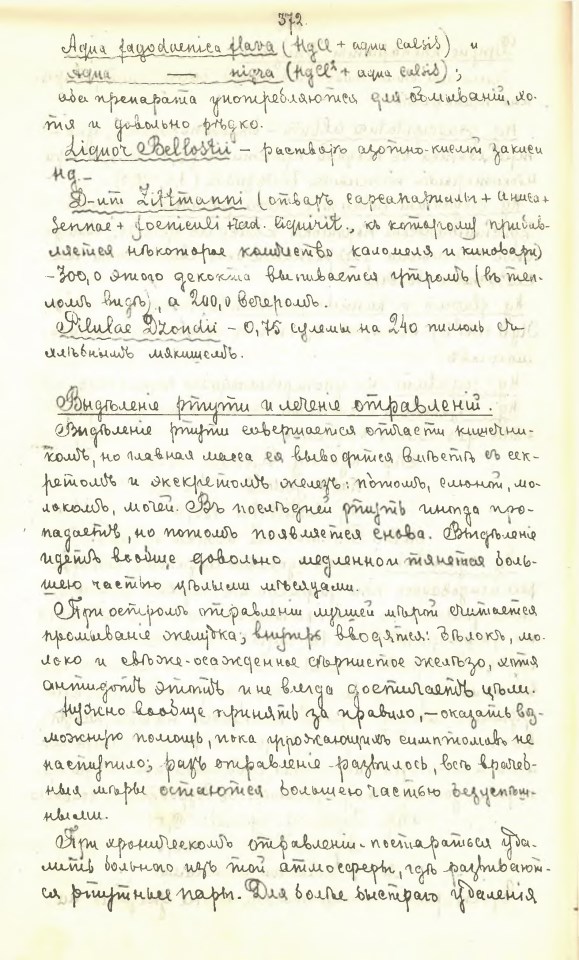 372.
Aqua fagodaenica flava (HgCl + aqua calcis) и
Aqua — nigra (HgCl² + aqua calcis);
оба препарата употребляются для обмываній, хо-
тя и довольно рѣдко.
Liquor Bellostii – растворъ азотно-кислой закиси
Hg.–
D-um Zittmanni (отваръ сарсапарилы + аниса +
Sennae + foeniculi + rad. liquirit., къ которому прибав-
ляется нѣкоторое количество каломеля и киновари)
–300,0 этого декокта выпивается утромъ (въ теп-
ломъ видѣ), а 200,0 вечеромъ.
Pilulae Dzondii – 0,75 сулемы на 240 пилюль съ
хлѣбнымъ мякишемъ.
Выдѣленіе ртути и леченіе отравленій.
Выдѣленіе ртути совершается отчасти кишечни-
комъ, но главная масса ея выводится вмѣстѣ съ сек-
ретомъ и экскретомъ железъ: потомъ, слюной, мо-
локомъ, мочей. Въ послѣдней ртуть иногда про-
падаетъ, но потомъ появляется снова. Выдѣленіе
идетъ вообще довольно медленно и тянется боль-
шею частью цѣлыми мѣсяцами.
При остромъ отравленіи лучшей мѣрой считается
промываніе желудка; внутрь вводятся: бѣлокъ, мо-
локо и свѣже-осажденное сѣрнистое желѣзо, хотя
антидотъ этотъ и не всегда достигаетъ цѣли.
Нужно вообще принять за правило, – оказать воз-
можную помощь, пока угрожающихъ симптомовъ не
наступило; разъ отравленіе развилось, всѣ врачеб-
ныя мѣры остаются большею частью безуспѣш-
ными.
При хроническомъ отравленіи – постараться уда-
лить больного изъ той атмосферы, гдѣ развивают-
ся ртутные пары. Для болѣе быстраго удаленія